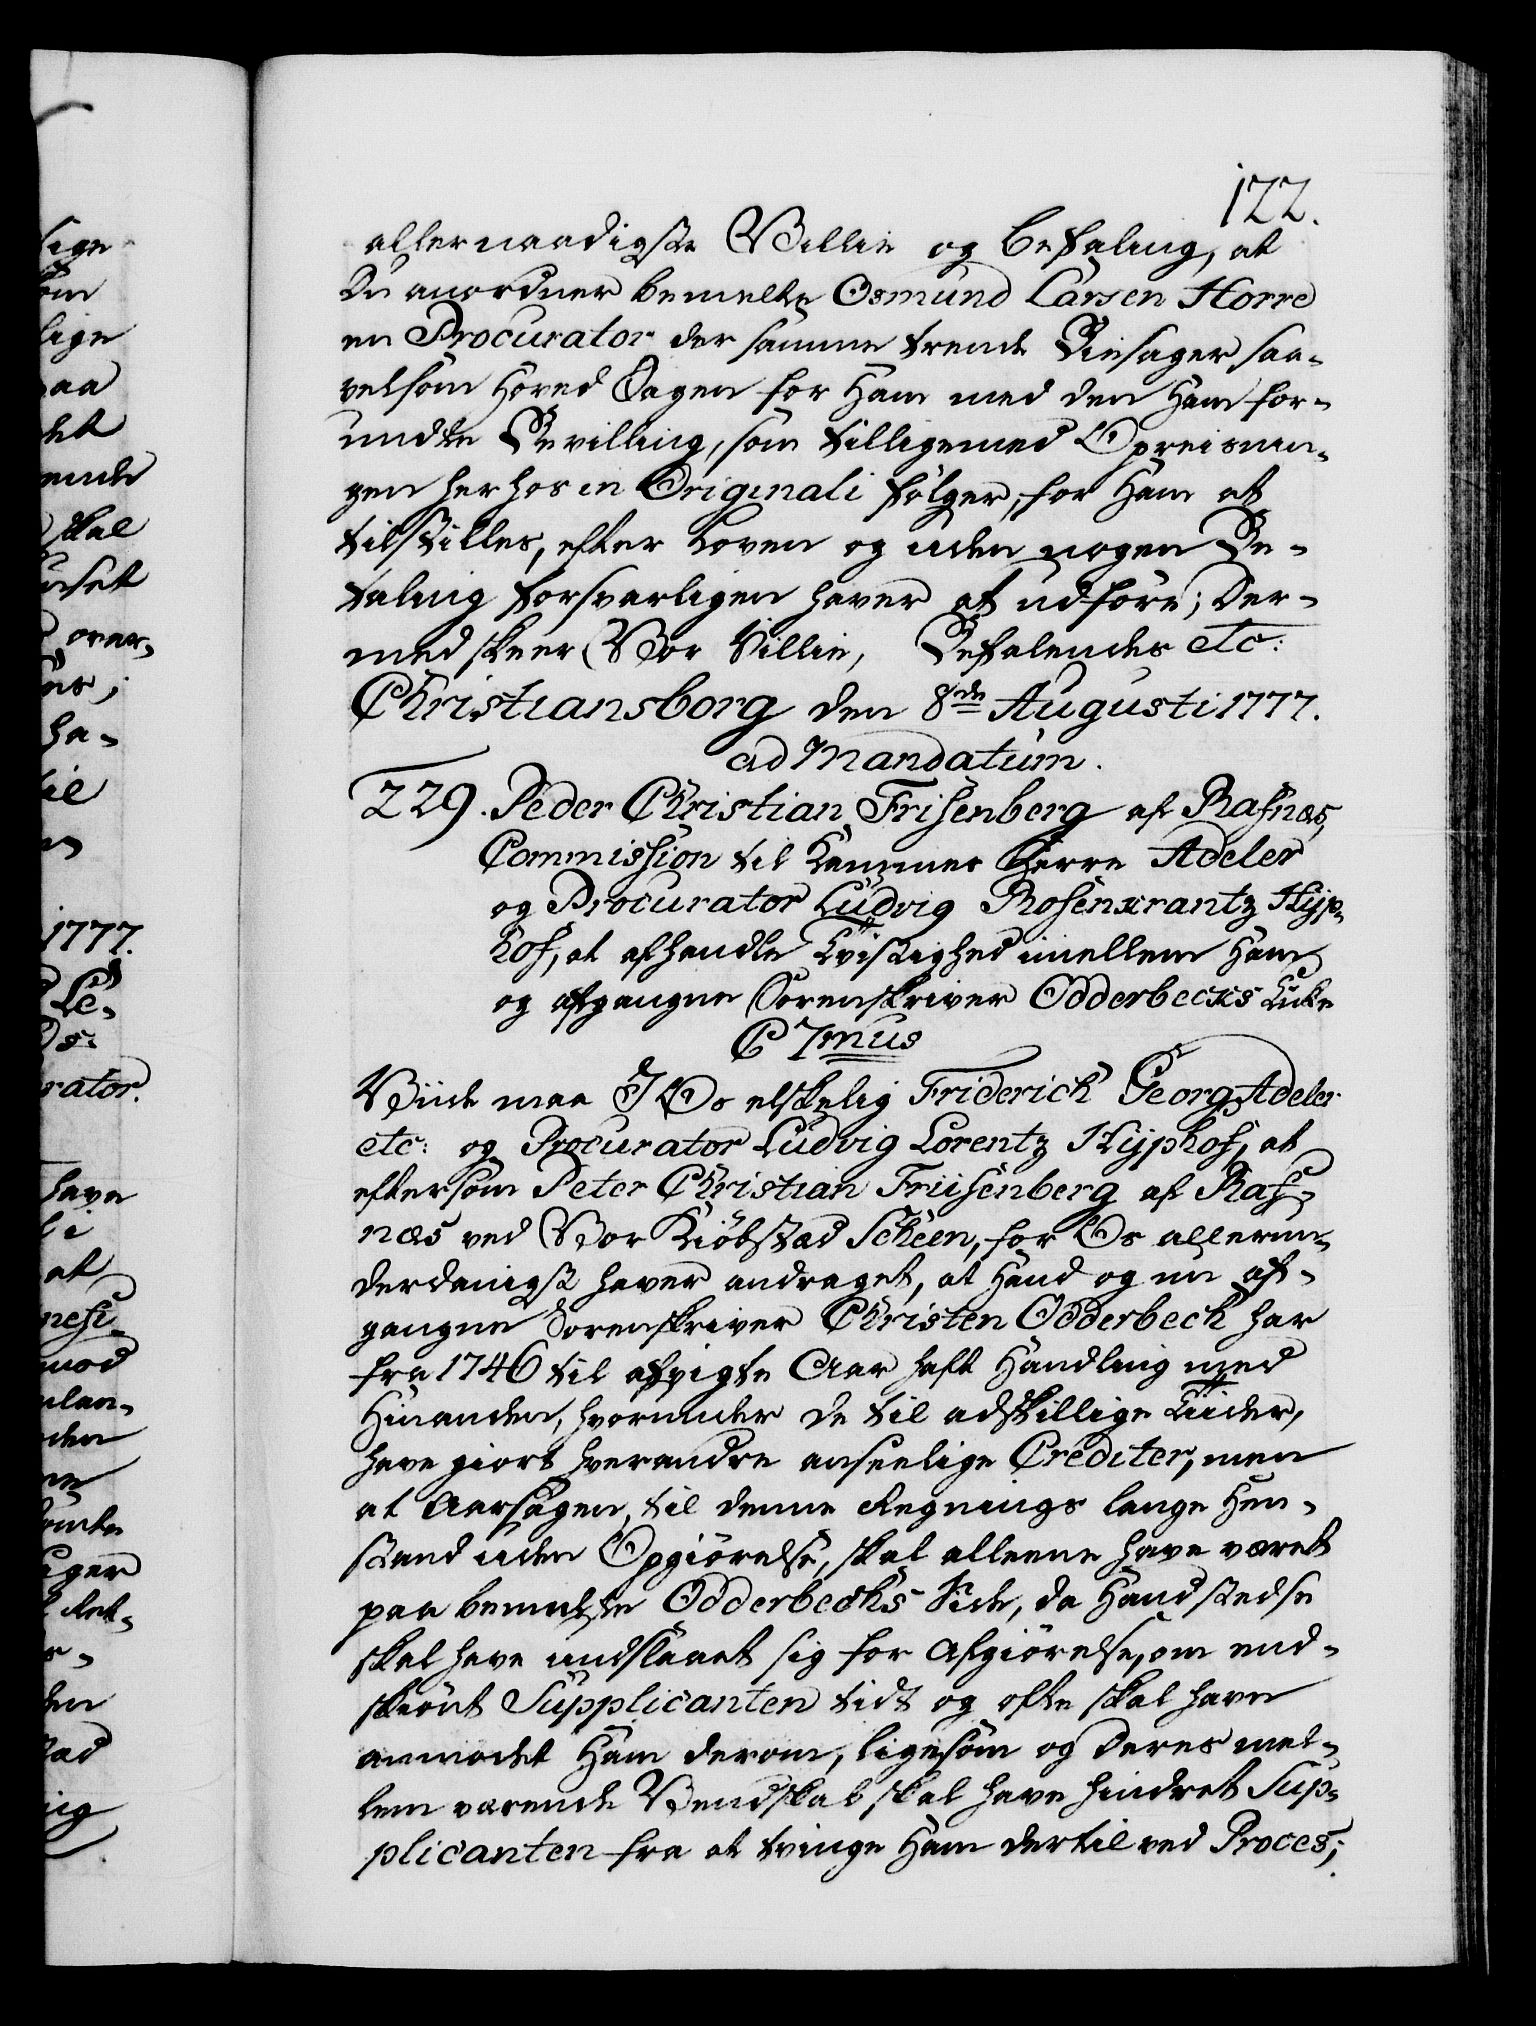 122.
allernaadigste Villie og Befaling, at
Du anordner bemelte Osmund Larsen Horre
en Procurator der samme trende Biesager saa-
velsom Hoved Sagen for Ham med den Ham for-
undte Bevilling, som tilligemed Opreisnin-
gen herhos in Originali følger, for Ham at
tilstilles, efter Loven og uden nogen Be-
taling forsvarligen haver at udføre; Der-
med skeer Vor Villie, Befalendes etc:
Christiansborg den 8de Augusti 1777.
ad Mandatum.
229. Peder Christian Frisenberg af Rafnæs,
Commission til Kammer Herre Adeler
og Procurator Ludvig Rosenkrantz Hyp-
hof, at afhandle Tvistighed imellem Ham
og afgangne Sorenskriver Odderbecks Enke
C 7mus
Viide maa I Os elskelig Friderich Georg Adeler
etc: og Procurator Ludvig Lorentz Hyphof, at
eftersom Peter Christian Friisenberg af Raf-
næs ved Vor Kiøbstad Scheen, for Os allerun-
derdanigst haver andraget, at Hand og nu af-
gangne Sorenskriver Christen Odderbech har
fra 1746 til afvigte Aar haft Handling med
Hinanden, hvorunder de til adskillige Tiider,
have giort hverandre anseelige Crediter, men
at Aarsagen til denne Regnings lange Hen-
stand uden Opgiørelse, skal alleene have været
paa bemelte Odderbechs Side, da Hand stedse
skal have undslaaet sig for Afgiørelse, om end-
skiønt Supplicanten tidt og ofte skal have
anmodet Ham derom, ligesom og Deres mel-
lem værende Venskab skal have hindret Sup-
plicanten fra at tvinge Ham dertil ved Proces;